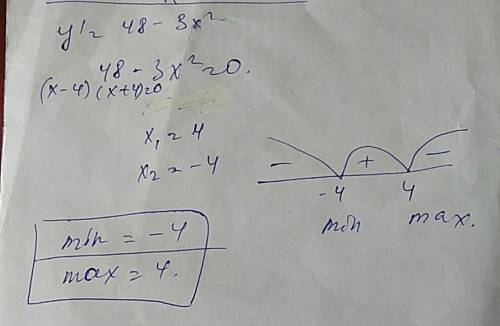 y' = 48 - 3x²
48 - 3x² = 0.
(x-4)(x+4)=0
x₁ = 4
x₂ = -4
- + -
-4 4
min max.
min = -4
max = 4.